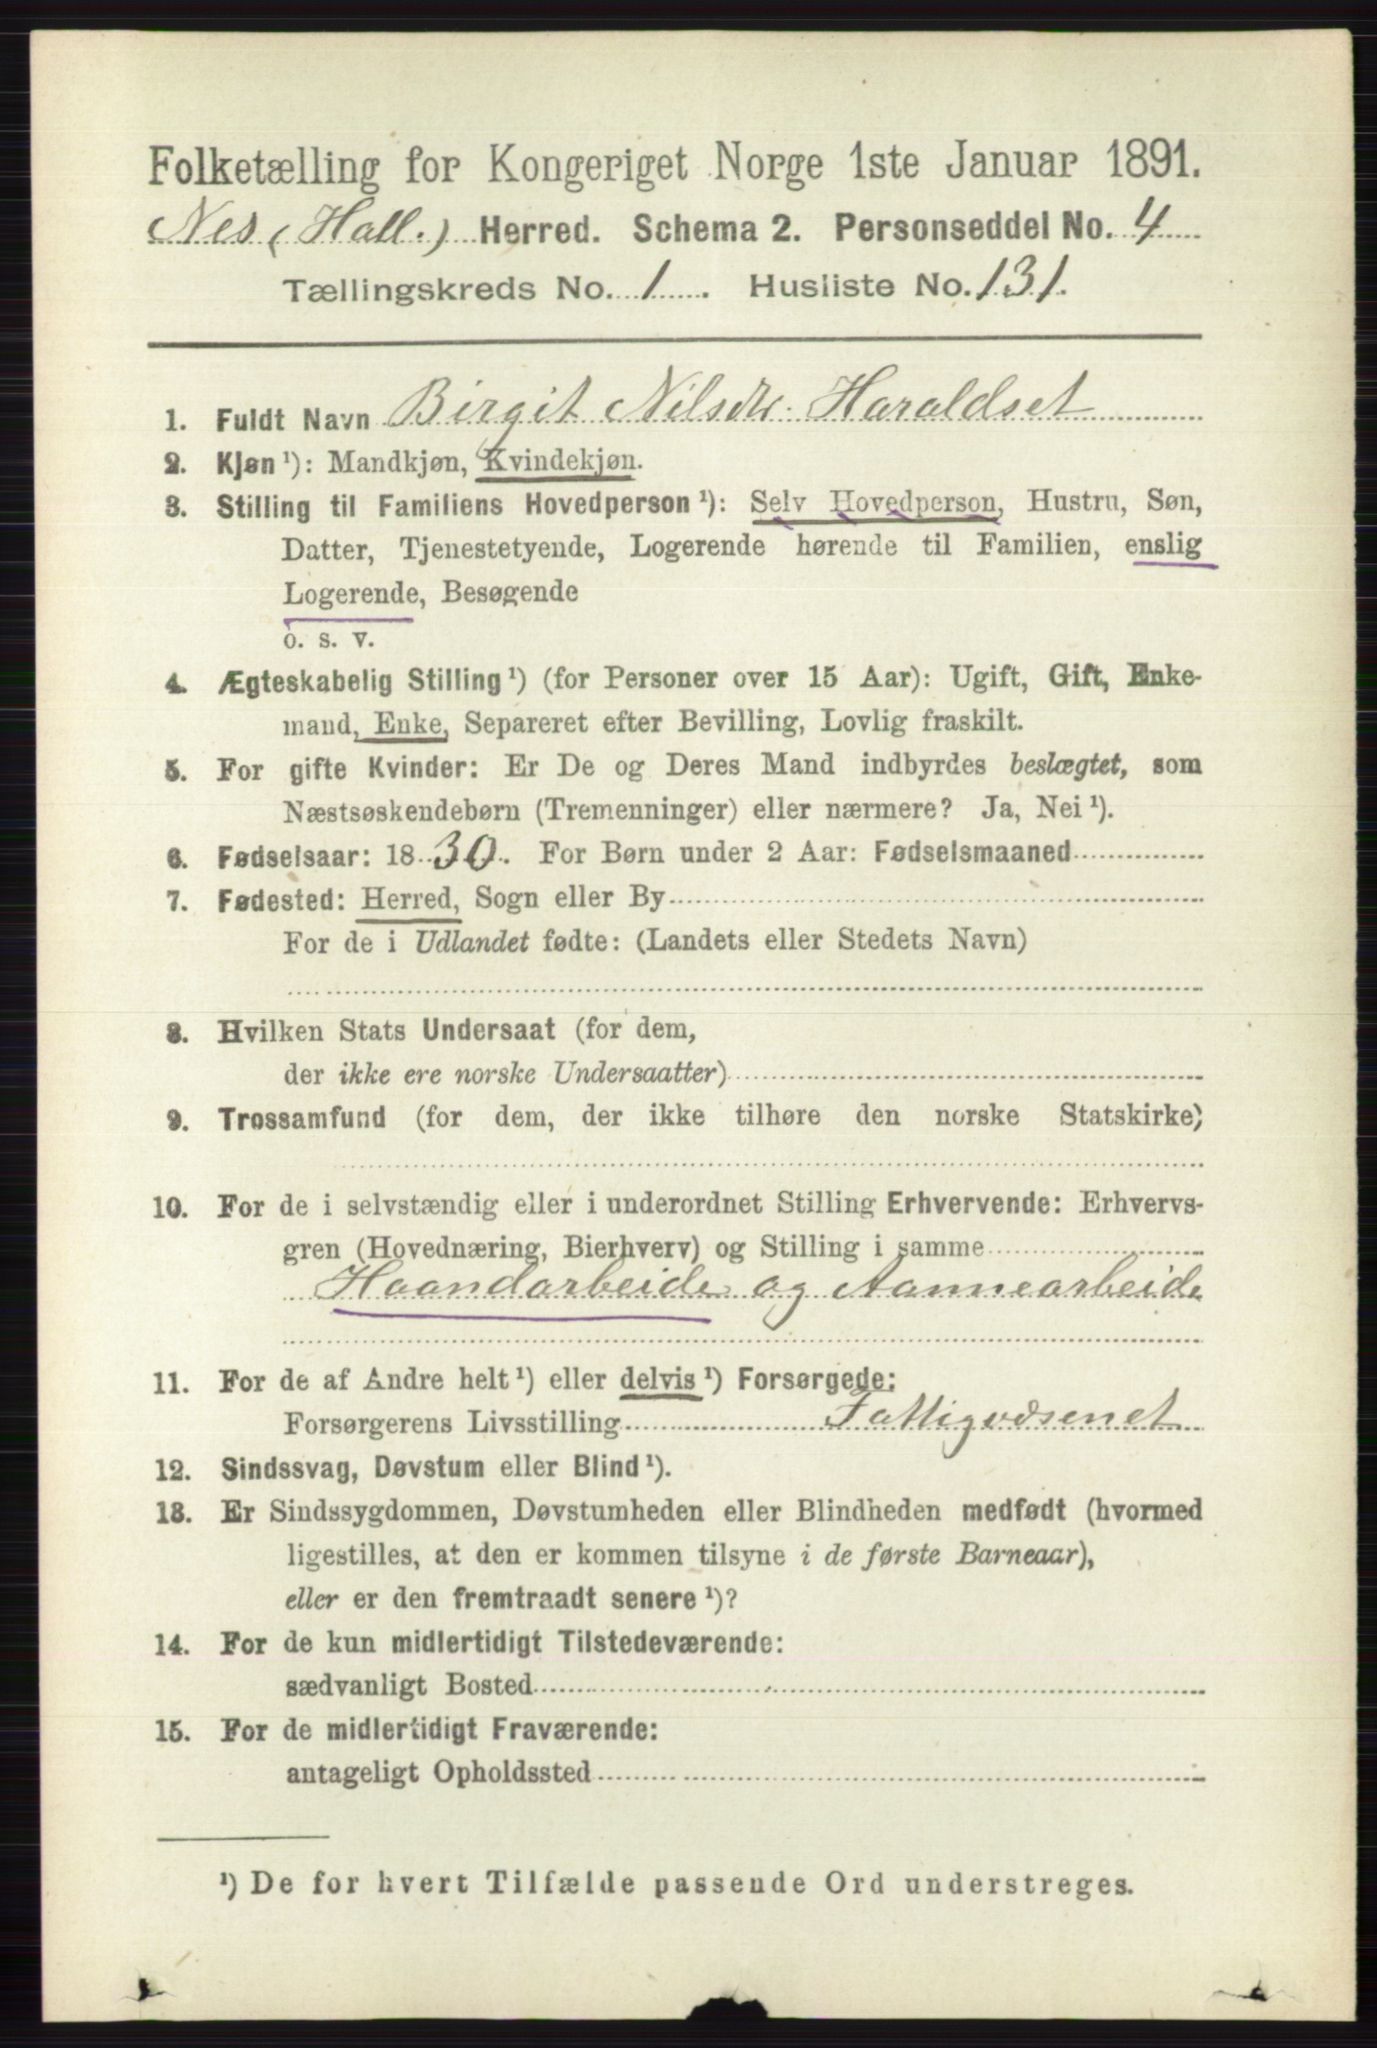 Folketælling for Kongeriget Norge 1ste Januar 1891.
Nes (Hall.) Herred. Schema 2. Personseddel No. 4
Tællingskreds No. 1. Husliste No. 131.
1. Fuldt Navn Birgit Nilsdtr. Haraldset
2. Kjøn ¹): Mandkjøn, Kvindekjøn.
3. Stilling til Familiens Hovedperson ¹): Selv Hovedperson, Hustru, Søn,
Datter, Tjenestetyende, Logerende hørende til Familien, enslig
Logerende, Besøgende
o. s. v.
4. Ægteskabelig Stilling ¹) (for Personer over 15 Aar): Ugift, Gift, Enke-
mand, Enke, Separeret efter Bevilling, Lovlig fraskilt.
5. For gifte Kvinder: Er De og Deres Mand indbyrdes beslægtet, som
Næstsøskendebørn (Tremenninger) eller nærmere? Ja, Nei ¹).
6. Fødselsaar: 1830. For Børn under 2 Aar: Fødselsmaaned
7. Fødested: Herred, Sogn eller By
For de i Udlandet fødte: (Landets eller Stedets Navn)
8. Hvilken Stats Undersaat (for dem,
der ikke ere norske Undersaatter)
9. Trossamfund (for dem, der ikke tilhøre den norske Statskirke)
10. For de i selvstændig eller i underordnet Stilling Erhvervende: Erhvervs-
gren (Hovednæring, Bierhverv) og Stilling i samme
Haandarbeide og Aannearbeide
11. For de af Andre helt ¹) eller delvis ¹) Forsørgede:
Forsørgerens Livsstilling Fattigvæsenet
12. Sindssvag, Døvstum eller Blind ¹).
13. Er Sindssygdommen, Døvstumheden eller Blindheden medfødt (hvormed
ligestilles, at den er kommen tilsyne i de første Barneaar),
eller er den fremtraadt senere ¹)?
14. For de kun midlertidigt Tilstedeværende:
sædvanligt Bosted
15. For de midlertidigt Fraværende:
antageligt Opholdssted
¹) De for hvert Tilfælde passende Ord understreges.